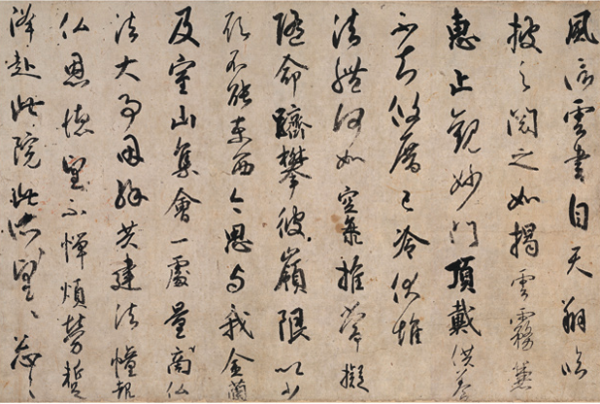 風信雲書自天翔臨
披之閲之如掲雲霧兼
恵止觀妙門頂戴供養
不知攸厝已冷伏惟
法體何如空海推常擬
隨命躋攀彼嶺限以少
願不能東西今思与我金蘭
及室山集會一處量商仏
法大事因縁共建法幢報
仏恩徳望不憚煩勞蹔
降赴此院此所望〻忩〻